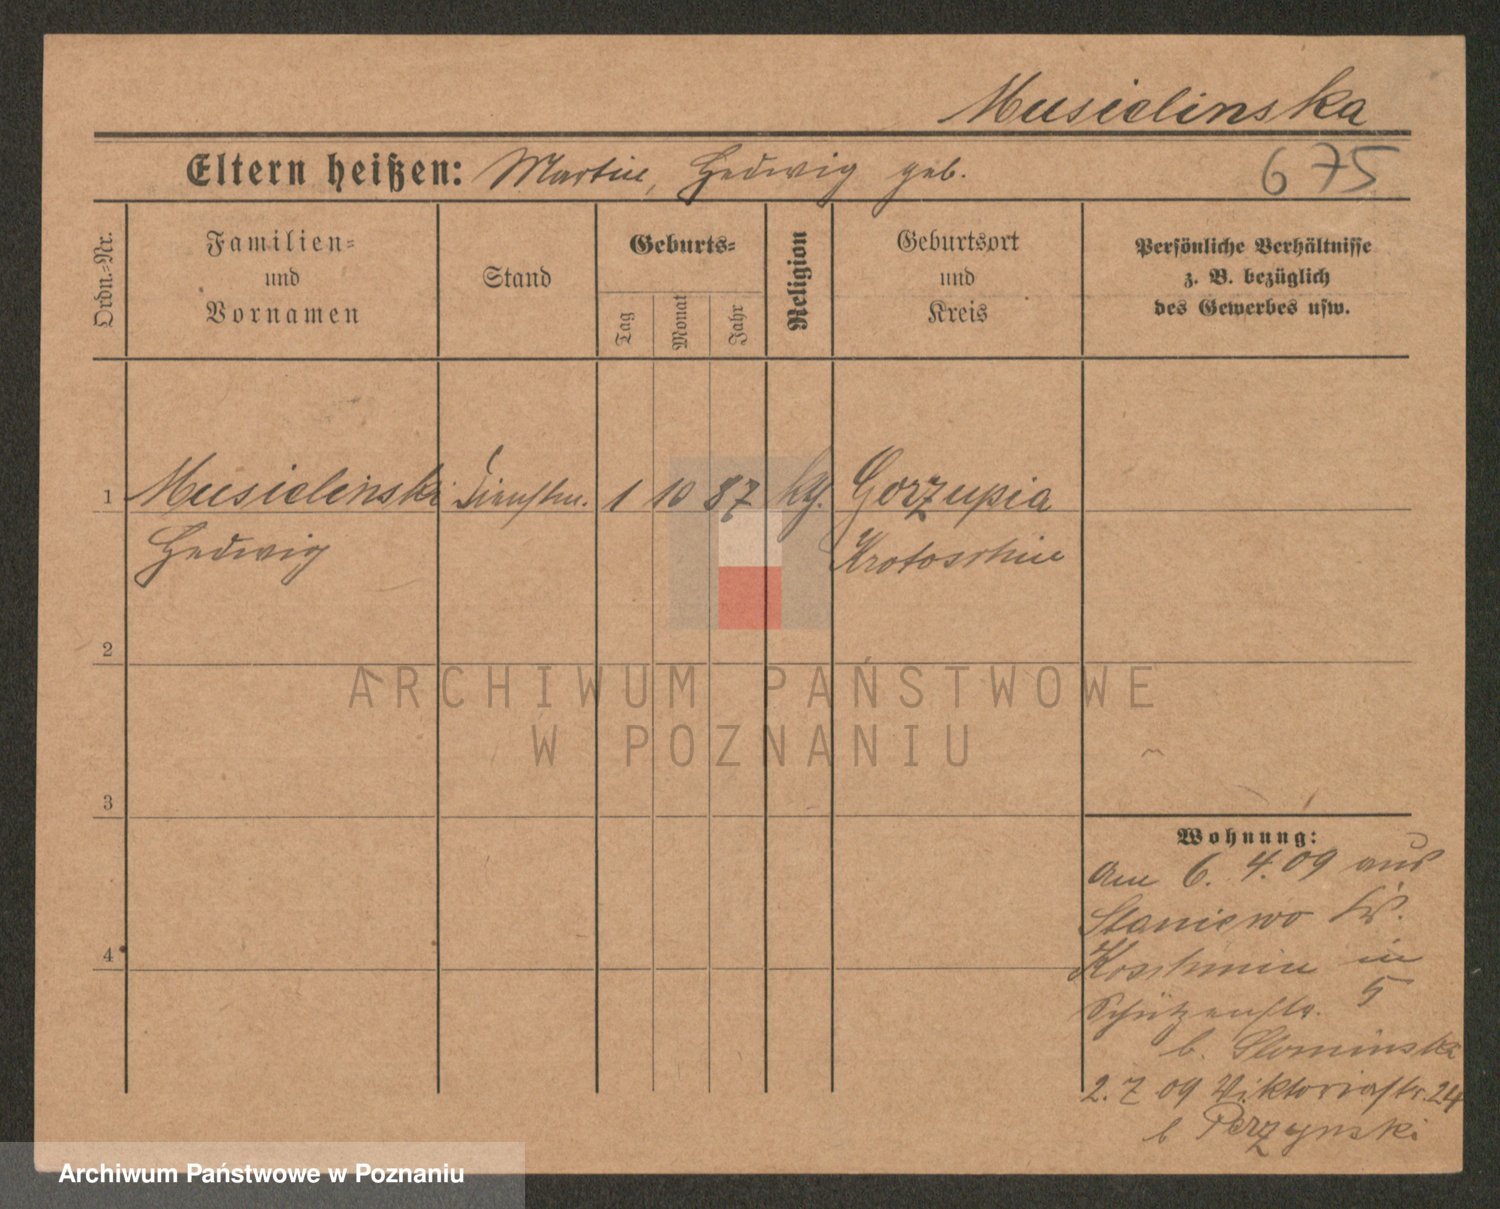 Musielinska
Eltern heißen: Martin, Hedwig geb.
675
Ordn.=Nr.
Familien=
und
Vornamen
Stand
Geburts=
Tag
Monat
Jahr
Religion
Geburtsort
und
Kreis
Persönliche Verhältnisse
z. B. bezüglich
des Gewerbes usw.
1 Musielinski Dienstm. 1 10 87 kg. Gorzupia
Hedwig Krotoschin
2
ARCHIWUM PAŃSTWOWE
W POZNANIU
3
Wohnung:
Am 6. 4. 09 aus
Staniewo Kr.
4 Koschmin in
Schützenstr. 5
b. Slominska
2. 7 09 Viktoriastr. 24
b Perzynski
Archiwum Państwowe w Poznaniu